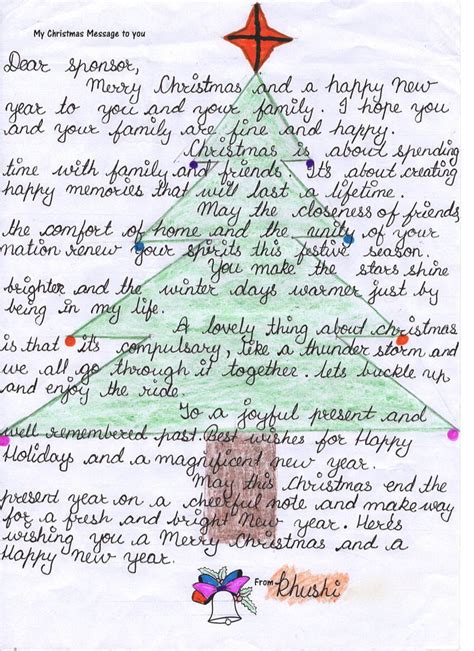 My Christmas Message to you
Dear sponsor,
Merry Christmas and a happy New
year to you and your family. I hope you
and your family are fine and happy.
Christmas is about spending
time with family and friends. It's about creating
happy memories that will last a lifetime.
May the closeness of friends
the comfort of home and the unity of your
nation renew your spirits this festive season.
You make the stars shine
brighter and the winter days warmer just by
being in my life.
A lovely thing about christmas
is that it's compulsary, like a thunder storm and
we all go through it together. lets buckle up
and enjoy the ride.
To a joyful present and
well remembered past. Best wishes for Happy
Holidays and a magnificent new year.
May this Christmas end the
present year on a cheerful note and make way
for a fresh and bright New year. Here's
wishing you a Merry Christmas and a
Happy New year.
From Khushi